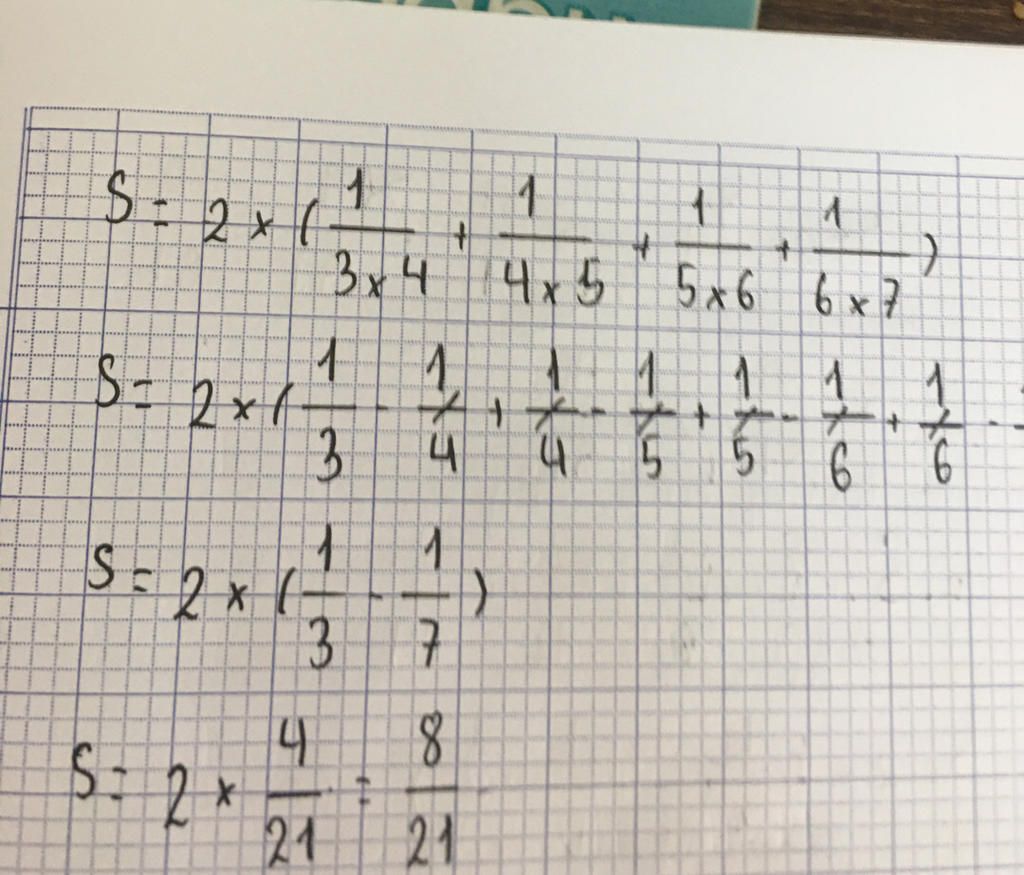 S = 2 × ( 1/3×4 + 1/4×5 + 1/5×6 + 1/6×7 )
S = 2 × ( 1/3 - 1/4 + 1/4 - 1/5 + 1/5 - 1/6 + 1/6 -
S = 2 × ( 1/3 - 1/7 )
S = 2 × 4/21 = 8/21